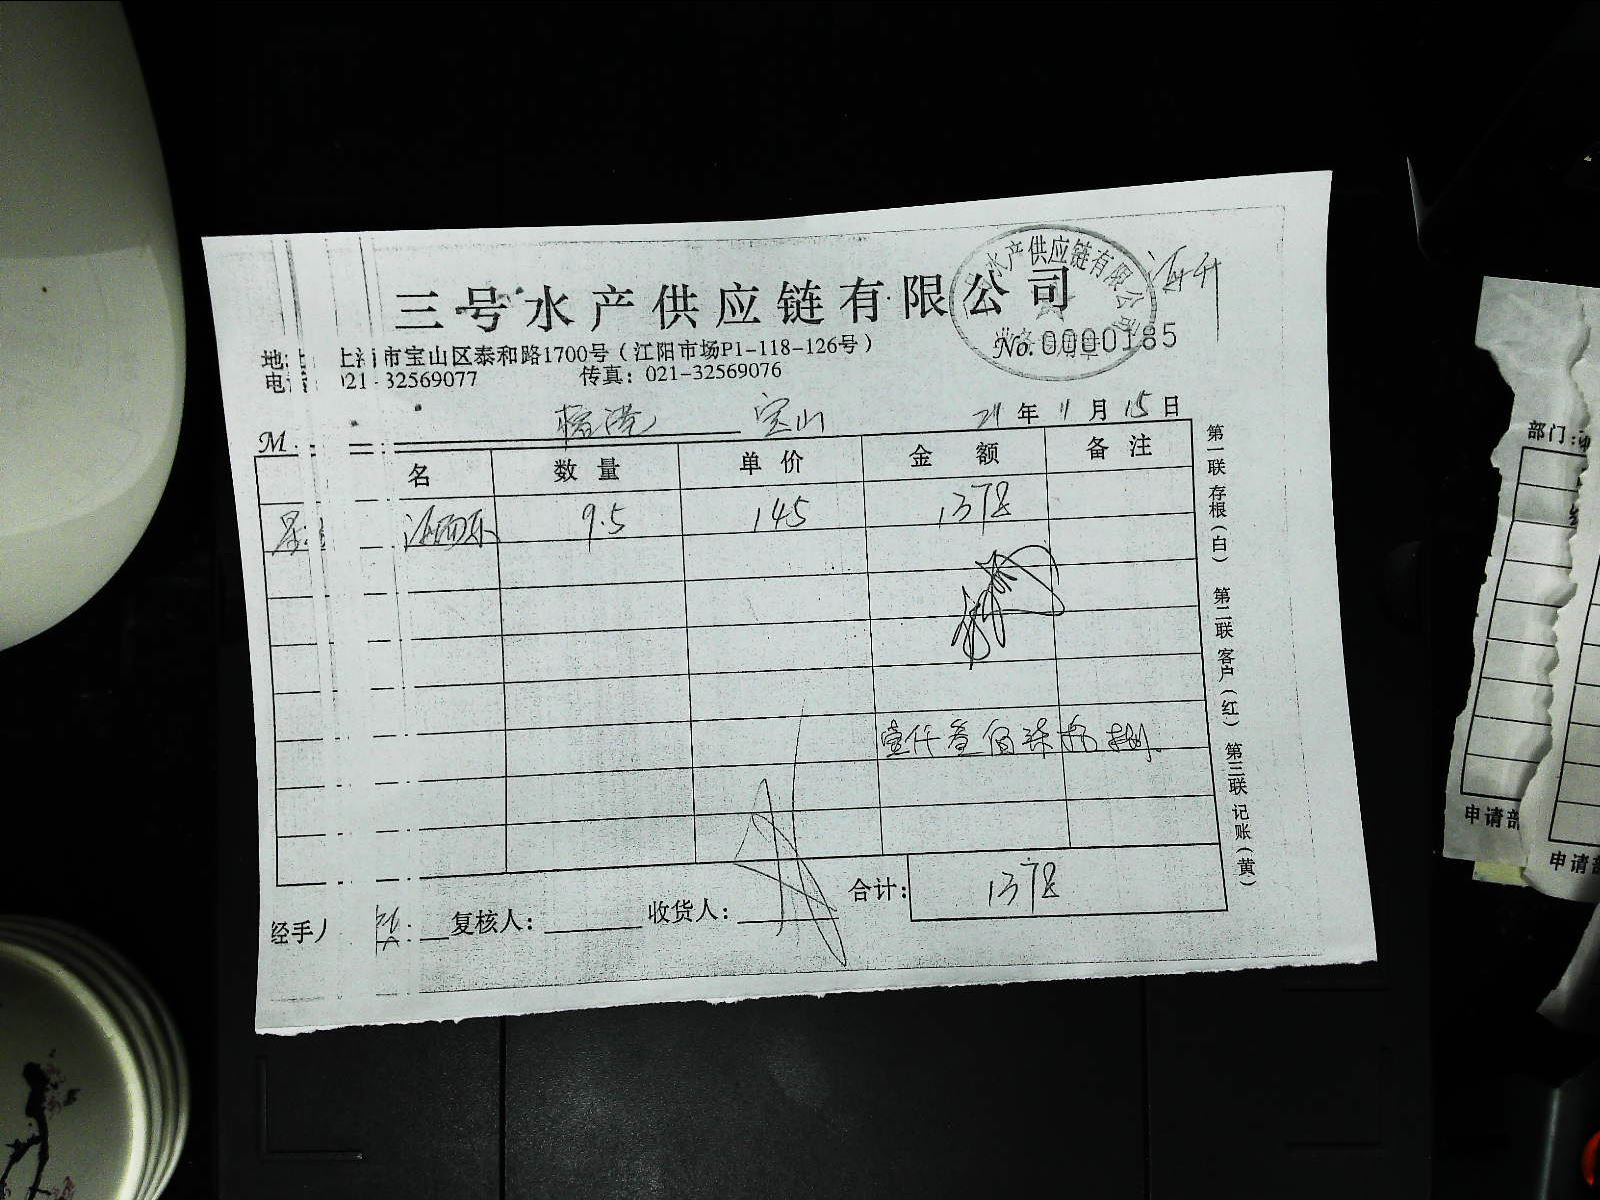 三号水产供应链有限公司
水产供应链有限公司
海升
No. 0000185
地址 上海市宝山区泰和路1700号（江阳市场P1-118-126号）
电话 021-32569077 传真：021-32569076
M 宝山 21 年 11 月 15 日
名 数量 单价 金额 备注
9.5 145 1378
壹仟叁佰柒拾捌
合计： 1378
经手人 复核人： 收货人：
第一联 存根（白） 第二联 客户（红） 第三联 记账（黄）
部门：
申请部
申请部